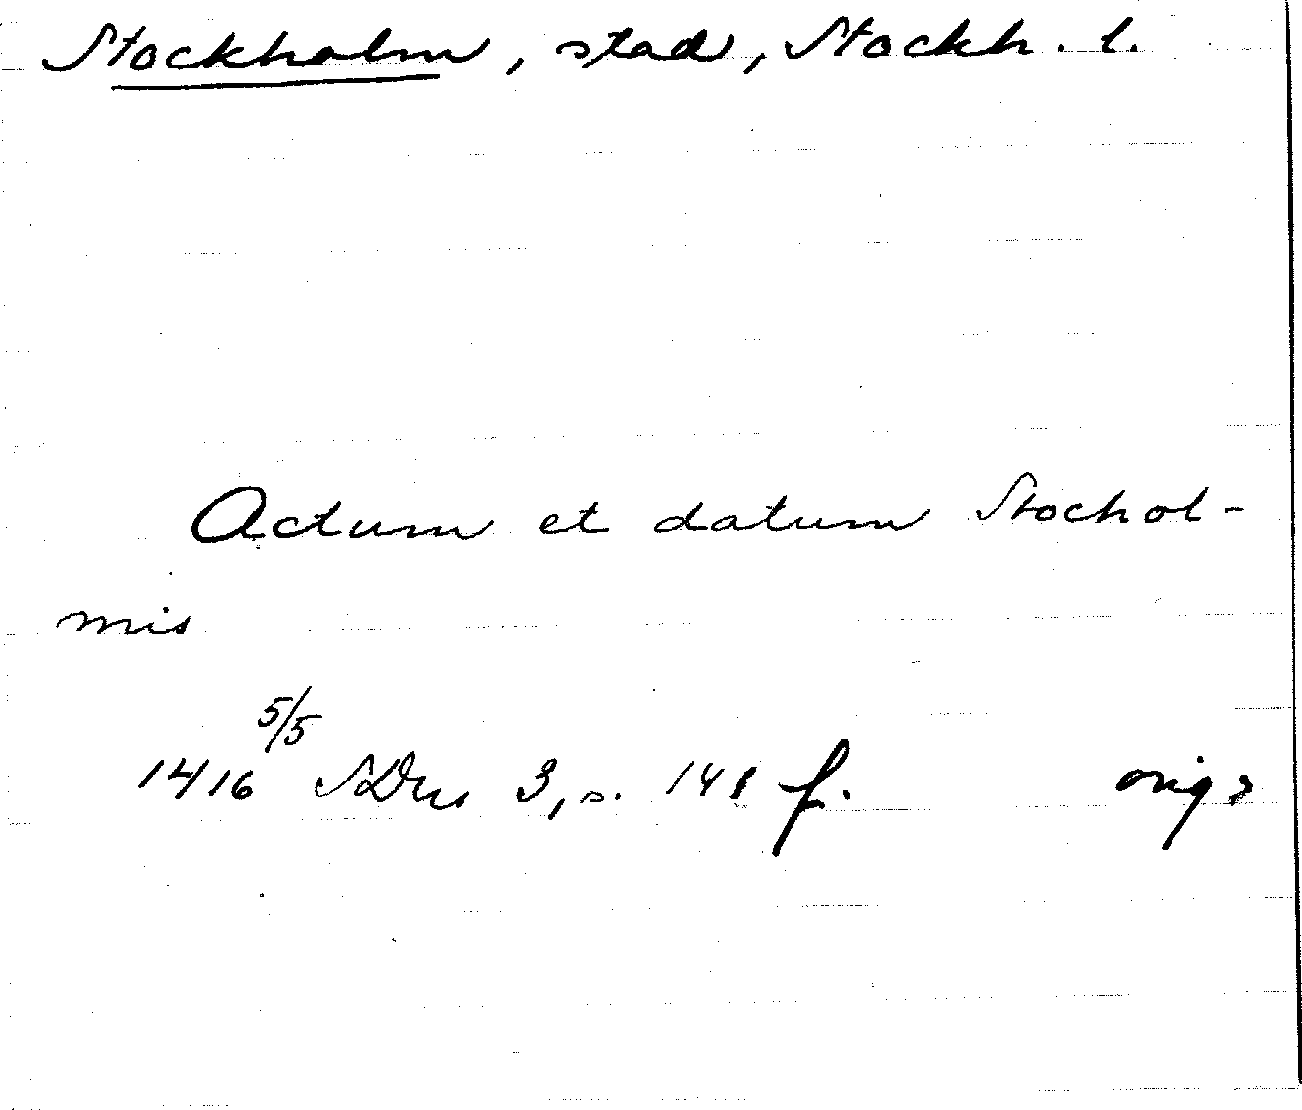 Stockholm, stad, Stockh. l.
Actum et datum Stochol-
mis
1416 5/5 SDns 3, s. 148 f. orig.